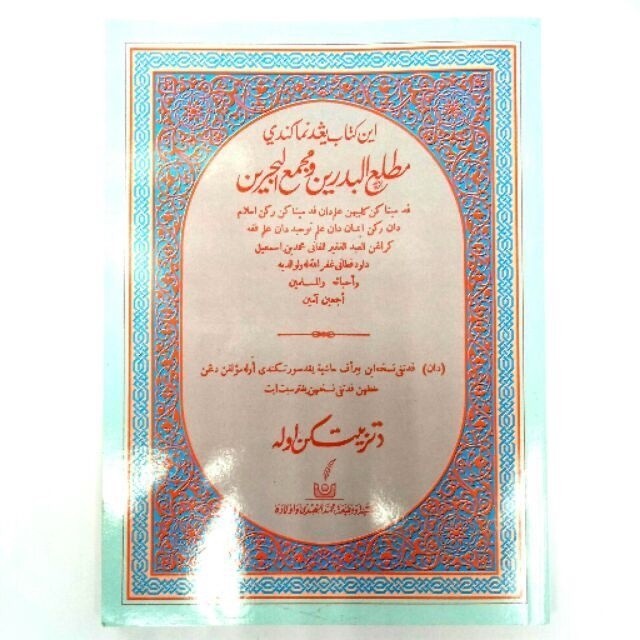 اين كتاب يڠدنماكندي
مطلع البدرين ومجمع البحرين
فد ميتاكن كلبيهن علم دان فد ميتاكن ركن اسلام
دان ركن ايمان دان علم توحيد دان علم فقه
كراڠن العبد الفقير الفاني محمد بن اسمعيل
داود فطاني غفر الله له ولوالديه
وأحبائه والمسلمين
أجمعين آمين
(دان) فدتڤي نسخه اين ببراف حاشية يڠدسورتكندي أوله مؤلفن دڠن
خطهن فدتڤي نسخهن يڠترسبت ايت
دتربيتكن اوله
ومطبعة محمد النهدي واولاده